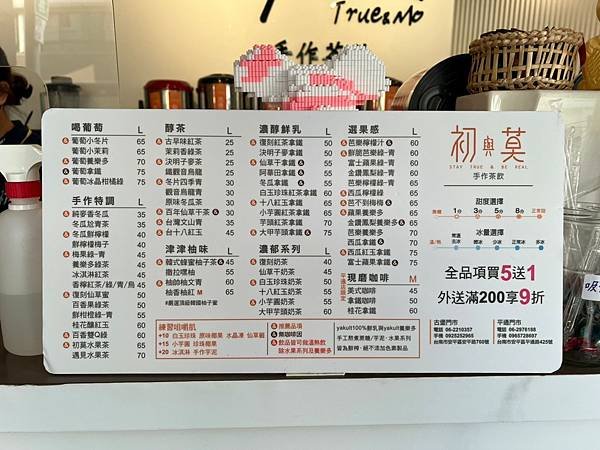 True&Mo
手作茶飲
喝葡萄 L
葡萄小冬片 65
葡萄小茉莉 65
葡萄養樂多 70
葡萄拿鐵 75
葡萄冰晶柑橘綠 75
手作特調 L
純麥香冬瓜 35
冬瓜尬青茶 30
冬瓜鮮檸檬 40
鮮檸檬梅子 40
梅果綠-青 45
養樂多綠茶 50
冰淇淋紅茶 45
香檸紅茶/綠/青/烏 45
復刻仙草蜜 50
百香果綠茶 50
鮮柑橙綠-青 50
桂花釀紅玉 60
百香雙Q綠 60
初莫水果茶 65
遇見水果茶 70
醇茶 L
古早味紅茶 25
茉莉香綠茶 25
決明子麥茶 25
鐵觀音烏龍 25
冬片四季青 30
觀音烏龍青 30
原味冬瓜茶 30
百年仙草干茶 30
台灣文山青 35
台十八紅玉 45
津津柚味 L
韓式蜂蜜柚子茶 65
撒拉嘿柚 55
柚帥柚文青 60
柚香柚紅 M 60
#嚴選頂級韓國柚子蜜
濃醇鮮乳 L
復刻紅茶拿鐵 50
決明子麥拿鐵 50
仙草干拿鐵 55
阿華田拿鐵 55
冬瓜拿鐵 55
白玉珍珠紅茶拿鐵 60
十八紅玉拿鐵 65
小芋圓紅茶拿鐵 65
芋頭紅茶拿鐵 70
大甲芋頭拿鐵 70
濃郁系列 L
復刻奶茶 40
仙草干奶茶 45
白玉珍珠奶茶 50
十八紅玉奶茶 55
小芋圓奶茶 55
大甲芋頭奶茶 60
選果感 L
芭樂檸檬汁 60
鮮脆芭樂綠-青 60
富士蘋果綠-青 60
金鑽鳳梨綠-青 60
芭樂檸檬綠-青 60
西瓜檸檬綠-青 60
芭不到梅梅 60
蘋果養樂多 65
金鑽鳳梨養樂多 65
西瓜拿鐵 65
芭樂養樂多綠-青 70
西瓜養樂多綠-青 70
富士蘋果拿鐵 70
現磨咖啡 M
平通店限定
美式咖啡 45
拿鐵咖啡 55
桂花拿鐵 65
練習咀嚼肌
+10 白玉珍珠 原味椰果 水晶凍 仙草細
+15 小芋圓 珍珠椰果
+20 冰淇淋 手作芋泥
推薦品項
無咖啡因
飲品皆可做溫熱飲
除水果系列及養樂多
yakult100%鮮乳與yakult養樂多
手工熬煮黑糖/芋泥·水果系列
皆為鮮榨·絕不添加色素製品
初與莫
STAY TRUE & BE REAL
手作茶飲
甜度選擇
無糖 1分 3分 5分 8分 正常甜
冰量選擇
溫/熱 常溫 去冰 微冰 少冰 正常冰 多冰
全品項買5送1
外送滿200享9折
古堡門市
電話 06-2210357
手機 0925252965
台南市安平區安平路760號
平通門市
電話 06-2978188
手機 0965728607
台南市安平區平通路425號